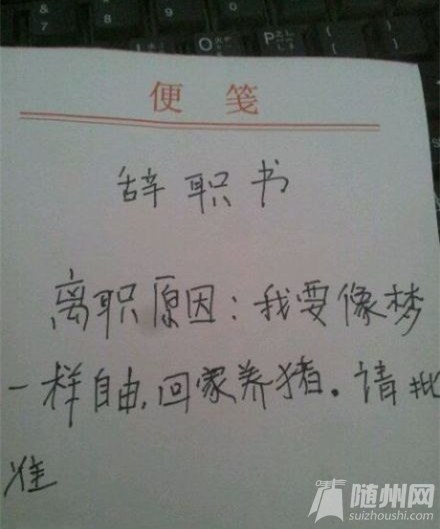 &7
*8
(9
O
P
便笺
辞职书
离职原因：我要像梦
一样自由，回家养猪。请批
准
随州网
suizhoushi.com